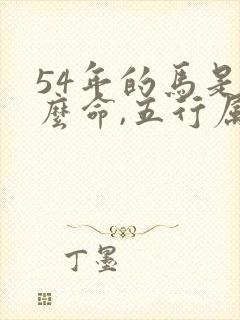 54年的馬是
麼命,五行屬
丁墨